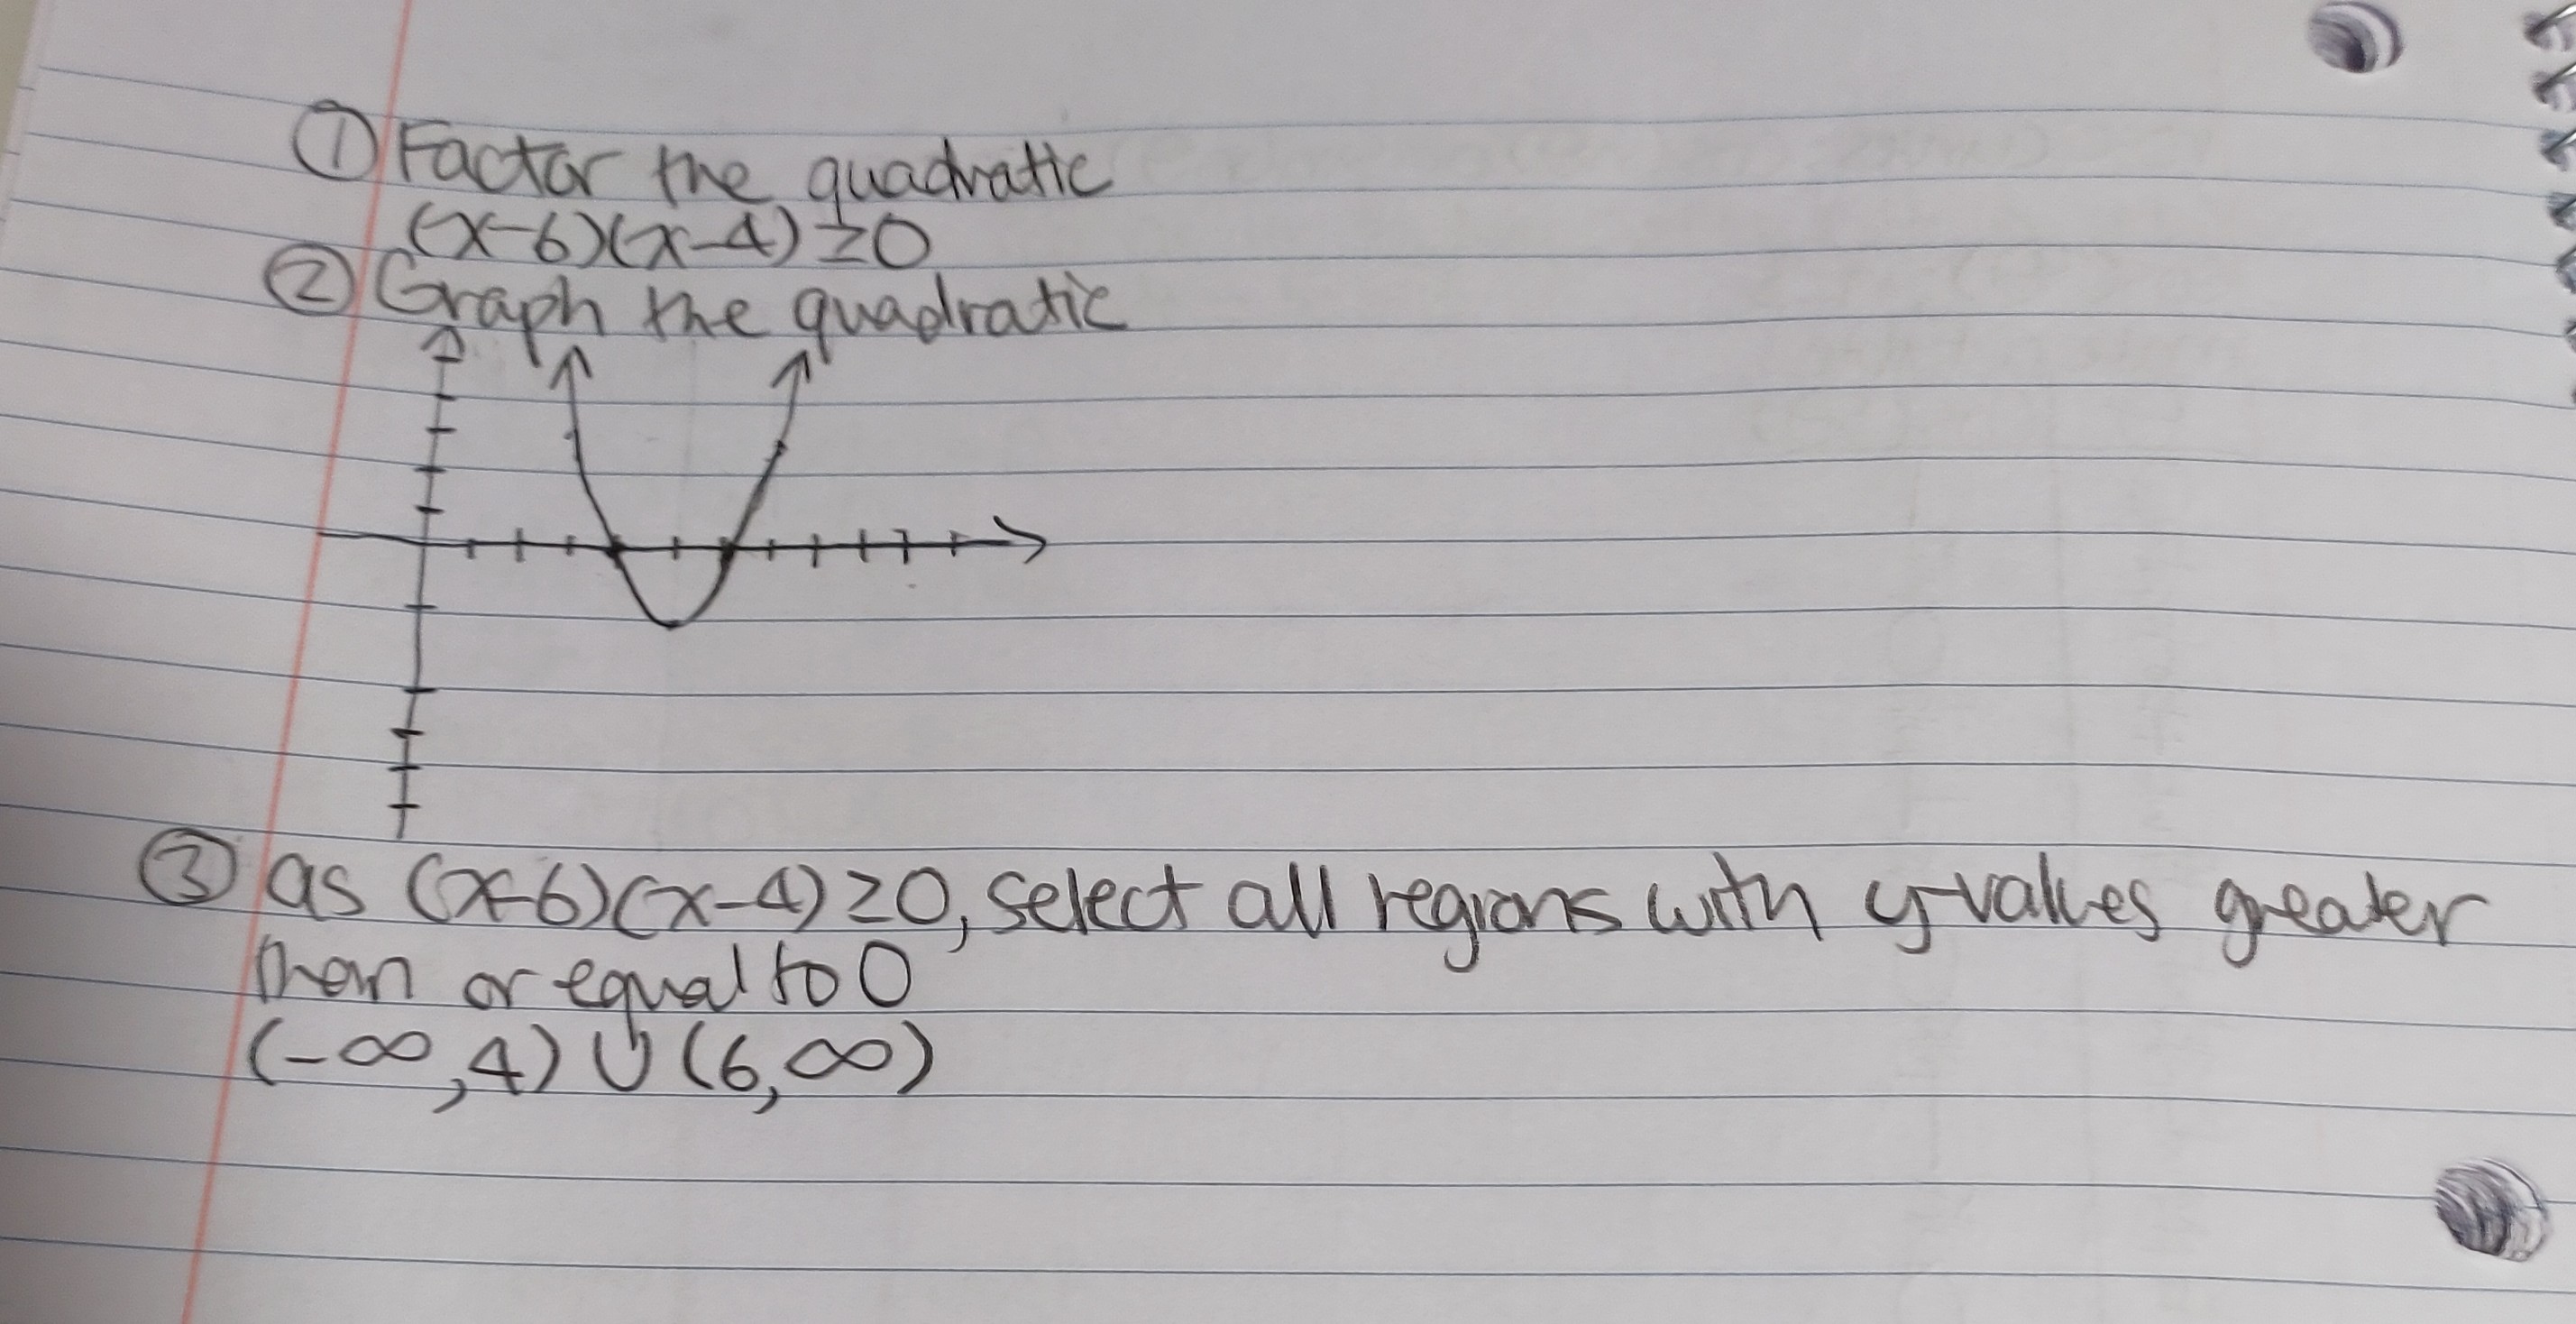 ① Factor the quadratic
(x-6)(x-4) ≥0
② Graph the quadratic
③ as (x-6)(x-4) ≥0, select all regions with y-values greater
than or equal to 0
(-∞,4) ∪ (6,∞)